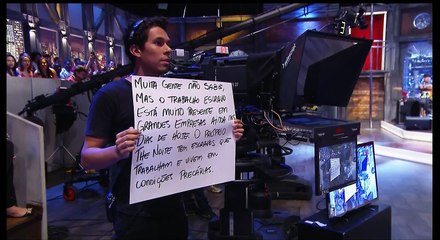 MUITA GENTE NÃO SABE,
MAS O TRABALHO ESCRAVO
ESTÁ MUITO PRESENTE EM
GRANDES EMPRESAS AINDA NOS
DIAS DE HOJE. O PRÓPRIO
THE NOITE TEM ESCRAVOS QUE
TRABALHAM E VIVEM EM
CONDIÇÕES PRECÁRIAS.